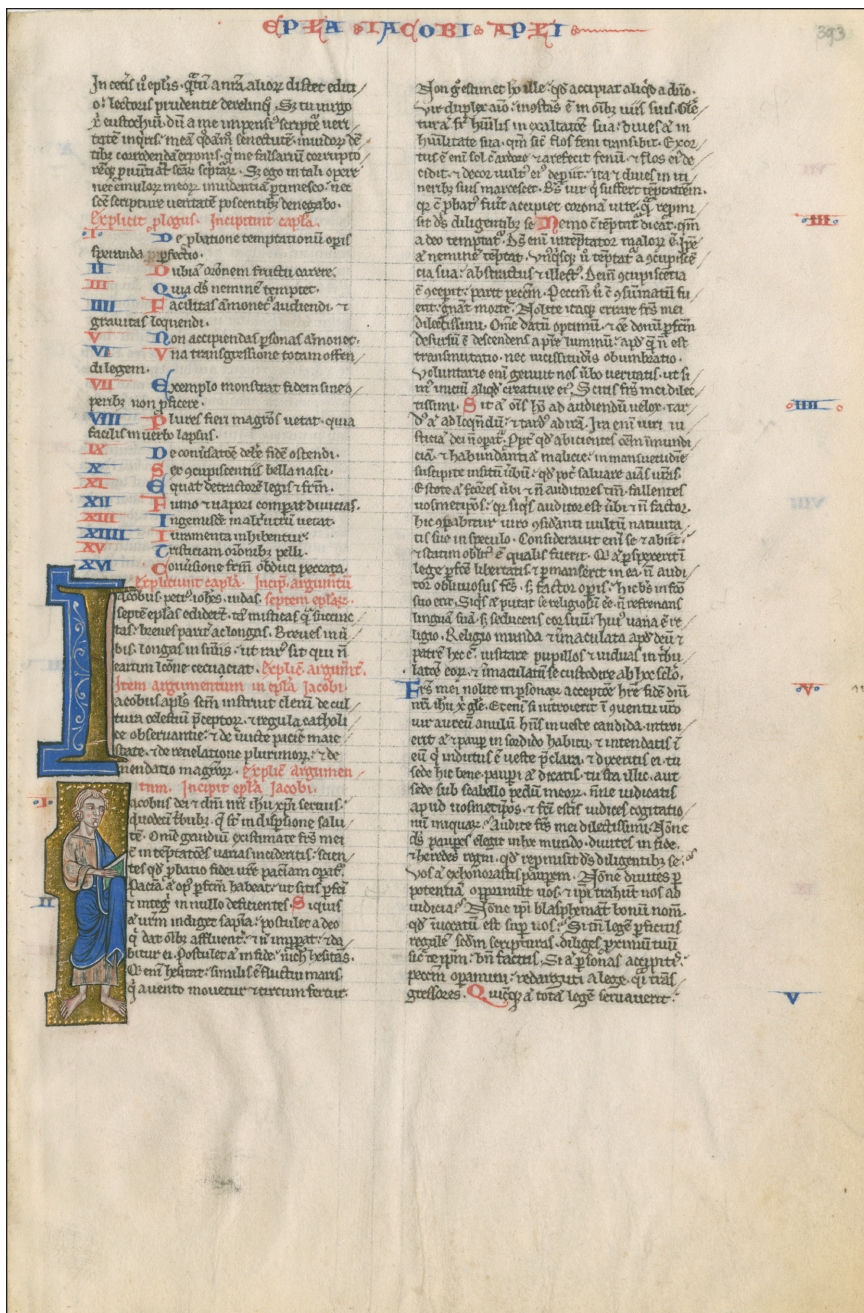 EPLA IACOBI APLI
393
In cet̃is ũ eplis · q̃tũ a nr̃a alior distet editi
o : lectoris prudentie derelinq̃ · Sz tu uirgo
x̃ eustochiũ · dũ a me impensiꝰ scripte ueri
tatẽ inq̃ris : meã q̃dãm senectutẽ · inuidor dẽ
tibz corrodendã exponis · q̃ me falsariũ corrupto
req̃ pñtiãt scãr septar · Sz ego in tali opere
nec emulor meor inuidentiã ptimesco : nec
scẽ scripture ueritatẽ poscentibz denegabo ·
Explicit plogus · Incipiunt capla ·
I · De pbatione temptationũ opis
speranda pfectio ·
II Dubiã or̃onem fructu carere ·
III Quia ds neminẽ temptet ·
IIII Facilitas am̃onet audiendi · ⁊
grauitas loquendi ·
V Non accipiendas psonas am̃onet ·
VI Vna transgressione totam offen
di legem ·
VII Exemplo monstrat fidem sine o
peribz non pficere ·
VIII Plures fieri magr̃os uetat · quia
facilis in uerbo lapsus ·
IX De conũsatõe debẽ fidẽ ostendi ·
X Seo ꝯcupiscentiis bella nasci ·
XI Equat detractorẽ legis ⁊ fr̃m ·
XII Fumo ⁊ uapori compat diuicias ·
XIII Ingenuisce in alt̃utrũ uetat ·
XIIII Iuramenta inhibentur ·
XV Tristiciam or̃onibus pelli ·
XVI Conũsione fr̃m obduci peccata ·
Expliciunt capla · Incip̃ · argumtũ
Iacobus · petrꝰ · ioh̃es · iudas · septem eplar ·
septẽ eplas edider̃t · tã misticas q̃ succinc
tas · breues parit̃ ac longas · Breues in ũ
bis · longas in sniis · ut rarꝰ sit qui ñ
in earum lc̃one cecuciat · Explic̃ argumt̃ ·
Item argumentum in epla Iacobi
Iacobus apls sc̃m instruit clerũ de cul
tura celestiũ p̃ceptor · ⁊ regula catholi
ce obseruantie : ⁊ de inuicte pacie maie
state · ⁊ de reuelatione plurimor : ⁊ de
mendatio magr̃or · Explic̃ argumen
tum · Incipit epla Iacobi ·
I · Iacobus dei ⁊ dñi nr̃i ihũ xp̃i seruus ·
duodeci t̃bubz · q̃ st̃ in dispsione salu
tẽ · Om̃e gaudiũ existimate fr̃s mei
cũ in temptatões uarias incideritis : scien
tes qd pbatio fidei ur̃e paciam opat̃ ·
Paciã aũ opꝰ pfc̃m habeat : ut sitis pfc̃i
⁊ integri in nullo deficientes · Siquis
II aũ ur̃m indiget sapia : postulet a deo
q̃ dat oĩbz affluent̃ : ⁊ ñ imppat : ⁊ da
bitur ei · Postulet aũ in fide : nich̃ hesitãs ·
Q̃ eni hesitat : similis ẽ fluctui maris ·
q̃ a uento mouetur ⁊ circum fertur ·
Non g̃ estimet hõ ille : qd accipiat aliq̃d a dño ·
Vir duplex aĩo : incõstãs ẽ in oĩbz uiis suis · Glo
rietur aũ fr̃ hũilis in exaltatõe sua : diues aũ in
hũilitate sua · qm̃ sic̃ flos feni transibit · Exor
tus ẽ eni sol cũ ardore ⁊ arefecit fenũ · ⁊ flos eiꝰ de
cidit · ⁊ decor uultꝰ eiꝰ depiit : ita ⁊ diues in iti
neribz suis marcescet · Bs̃ uir q̃ suffert tẽptatõem ·
qr̃ cũ pbatꝰ fuit̃ accipiet coronã uite · q̃ repmi
III sit ds diligentibz se · Nemo cũ tẽptat̃ dicat · qm̃
a deo temptat̃ · Ds eni intẽptator malor ẽ · Ip̃e
aũ neminẽ tẽptat · Vnꝰq̃sq̃ ũ tẽptat̃ a ꝯcupiscẽ
cia sua : abstractus ⁊ illectꝰ · Dein ꝯcupiscẽcia
cũ ꝯcepit̃ : parit peccm̃ · Peccm̃ ũ cũ ꝯsũmatũ fu
erit : gñat mortẽ · Nolite itaq̃ errare fr̃s mei
dilectissimi · Om̃e datũ optimũ · ⁊ oẽ donũ pfc̃m
desursũ ẽ · descendens a pr̃e luminũ : apd q̃ ñ est
transmutatio · nec uicissitudis obumbratio ·
Voluntarie eni genuit nos ũbo ueritatis · ut si
mꝰ iniciũ aliqd creature eiꝰ · Scitis fr̃s mei dilec
IIII tissimi · Sit aũ oĩs hõ ad audiendũ uelox · tar
dꝰ aũ ad loq̃ndũ : ⁊ tardꝰ ad irã · Ira eni uiri iu
sticiã dei ñ opat̃ · Ppt̃ qd abicientes oẽm ĩmundi
ciã · ⁊ habundantiã malicie : in mansuetudie
suscipite insitũ ũbũ : qd pot̃ saluare aĩas ur̃as ·
Estote aũ fc̃ores ũbi ⁊ ñ auditores tm̃ · fallentes
uosmetip̃os : qr̃ siq̃s auditor est ũbi ⁊ ñ factor ·
hic ꝯpabitur uiro ꝯsidanti uultũ natiuita
tis sue in speculo · Considerauit eni se ⁊ abiit :
⁊ statim oblitꝰ ẽ qualis fuerit · Q̃ aũ pspexerit ĩ
legẽ pfc̃e libertatis ⁊ pmanserit in ea · ñ audi
tor obliuiosus fc̃s · sz factor opis : hic bs̃ in fc̃o
suo erit · Siq̃s aũ putat se religiosũ ee · ñ refrenans
linguã suã · sz seducens cor suũ : huiꝰ uana ẽ re
ligio · Religio munda ⁊ inmaculata apd deũ ⁊
patrẽ hec ẽ : uisitare pupillos ⁊ uiduas in t̃bu
latõe eor : ⁊ inmaculatũ se custodire ab hoc sclo ·
V · Fr̃s mei nolite in psonar acceptõe hr̃e fidẽ dñi
nr̃i ihũ x̃ gl̃e · Eteni si introierit ĩ ꝯuentu ur̃o
uir aureũ anulũ hñs in ueste candida · introi
erit aũ ⁊ paup in sordido habitu · ⁊ intendatis ĩ
eũ q̃ indutus ẽ ueste p̃clara · ⁊ dixeritis ei · tu
sede hic bene · paupi aũ dicatis · tu sta illic · aut
sede sub scabello pedũ meor · nñe iudicatis
apud uosmetip̃os · ⁊ fc̃i estis iudices cogitatio
nũ iniquar : Audite fr̃s mei dilectissimi · Nõne
ds paupes elegit in hoc mundo · diuites in fide
⁊ heredes regni · qd repmisit ds diligentibz se :
Vos aũ exhonorastis paupem · Nõne diuites p
potentiã opprimũt uos · ⁊ ip̃i trahũt uos ad
iudicia : Nõne ip̃i blasphemãt bonũ nom̃ ·
qd inuocatũ est sup uos : Si tm̃ legẽ pficitis
regalẽ scdm scripturas · diliges pximũ tuũ
sic̃ teip̃m : bñ facitis · Si aũ psonas accipitis ·
peccm̃ opamini : redarguti a lege · q̃i trãs
V gressores · Quicq̃ aũ totã legẽ seruauerit ·